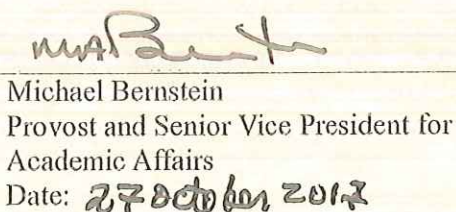 Michael Bernstein
Provost and Senior Vice President for
Academic Affairs
Date: 27 October 2017